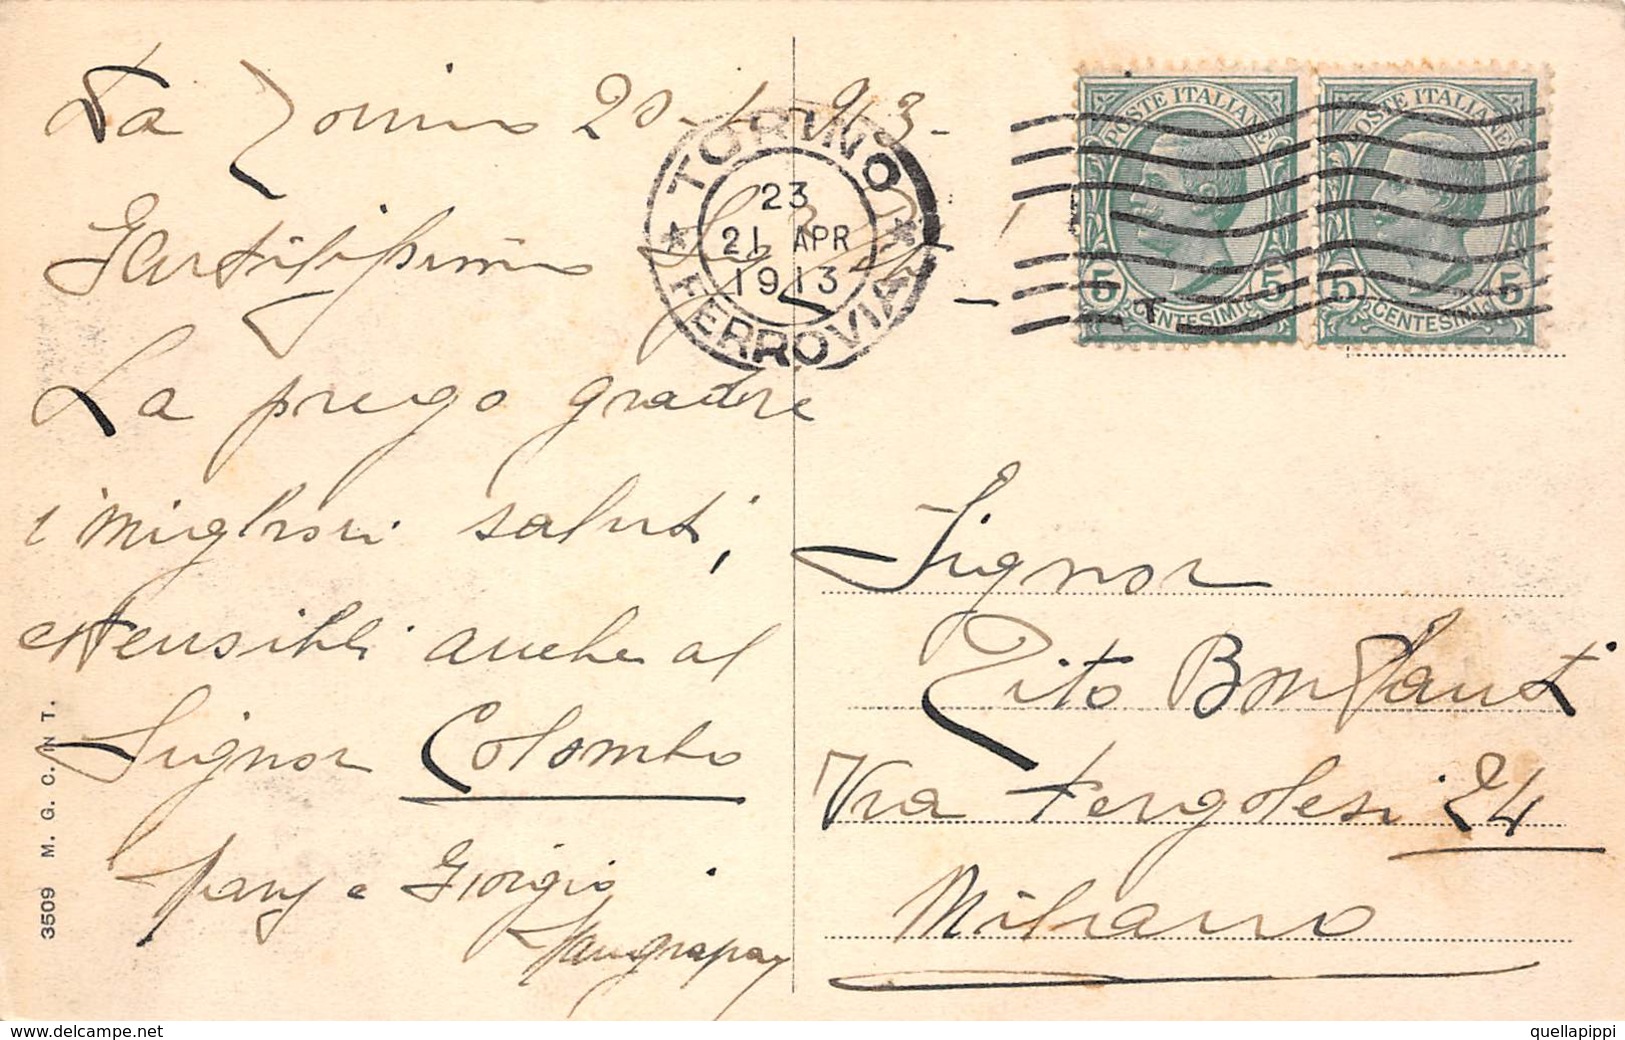 Da Torino 20-4-913-
Gentilissimo
La prego gradire
i migliori saluti,
estensibili anche al
Signor Colombo
e Giorgio
TORINO
23
21 APR
1913
FERROVIA
POSTE ITALIANE
5 CENTESIMI 5
POSTE ITALIANE
5 CENTESIMI 5
Signor
Tito Bonfanti
Via Pergolesi 24
Milano
3509 M. G. C. IN T.
www.delcampe.net
quellapippi